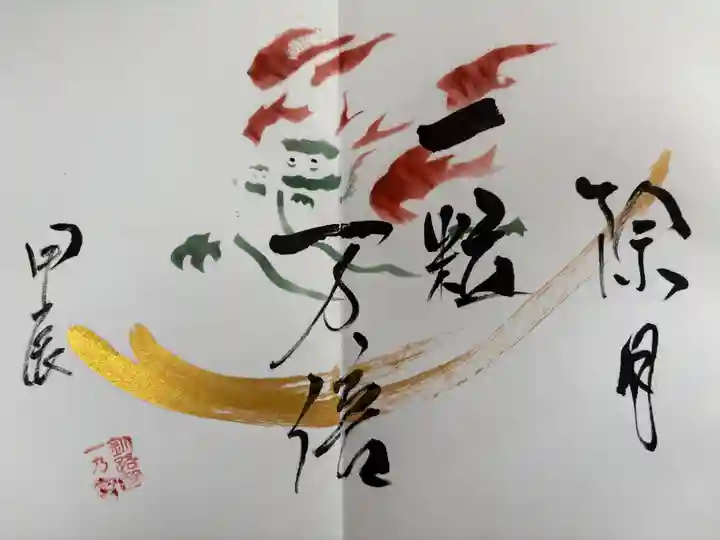 除月
一粒
万倍
甲辰